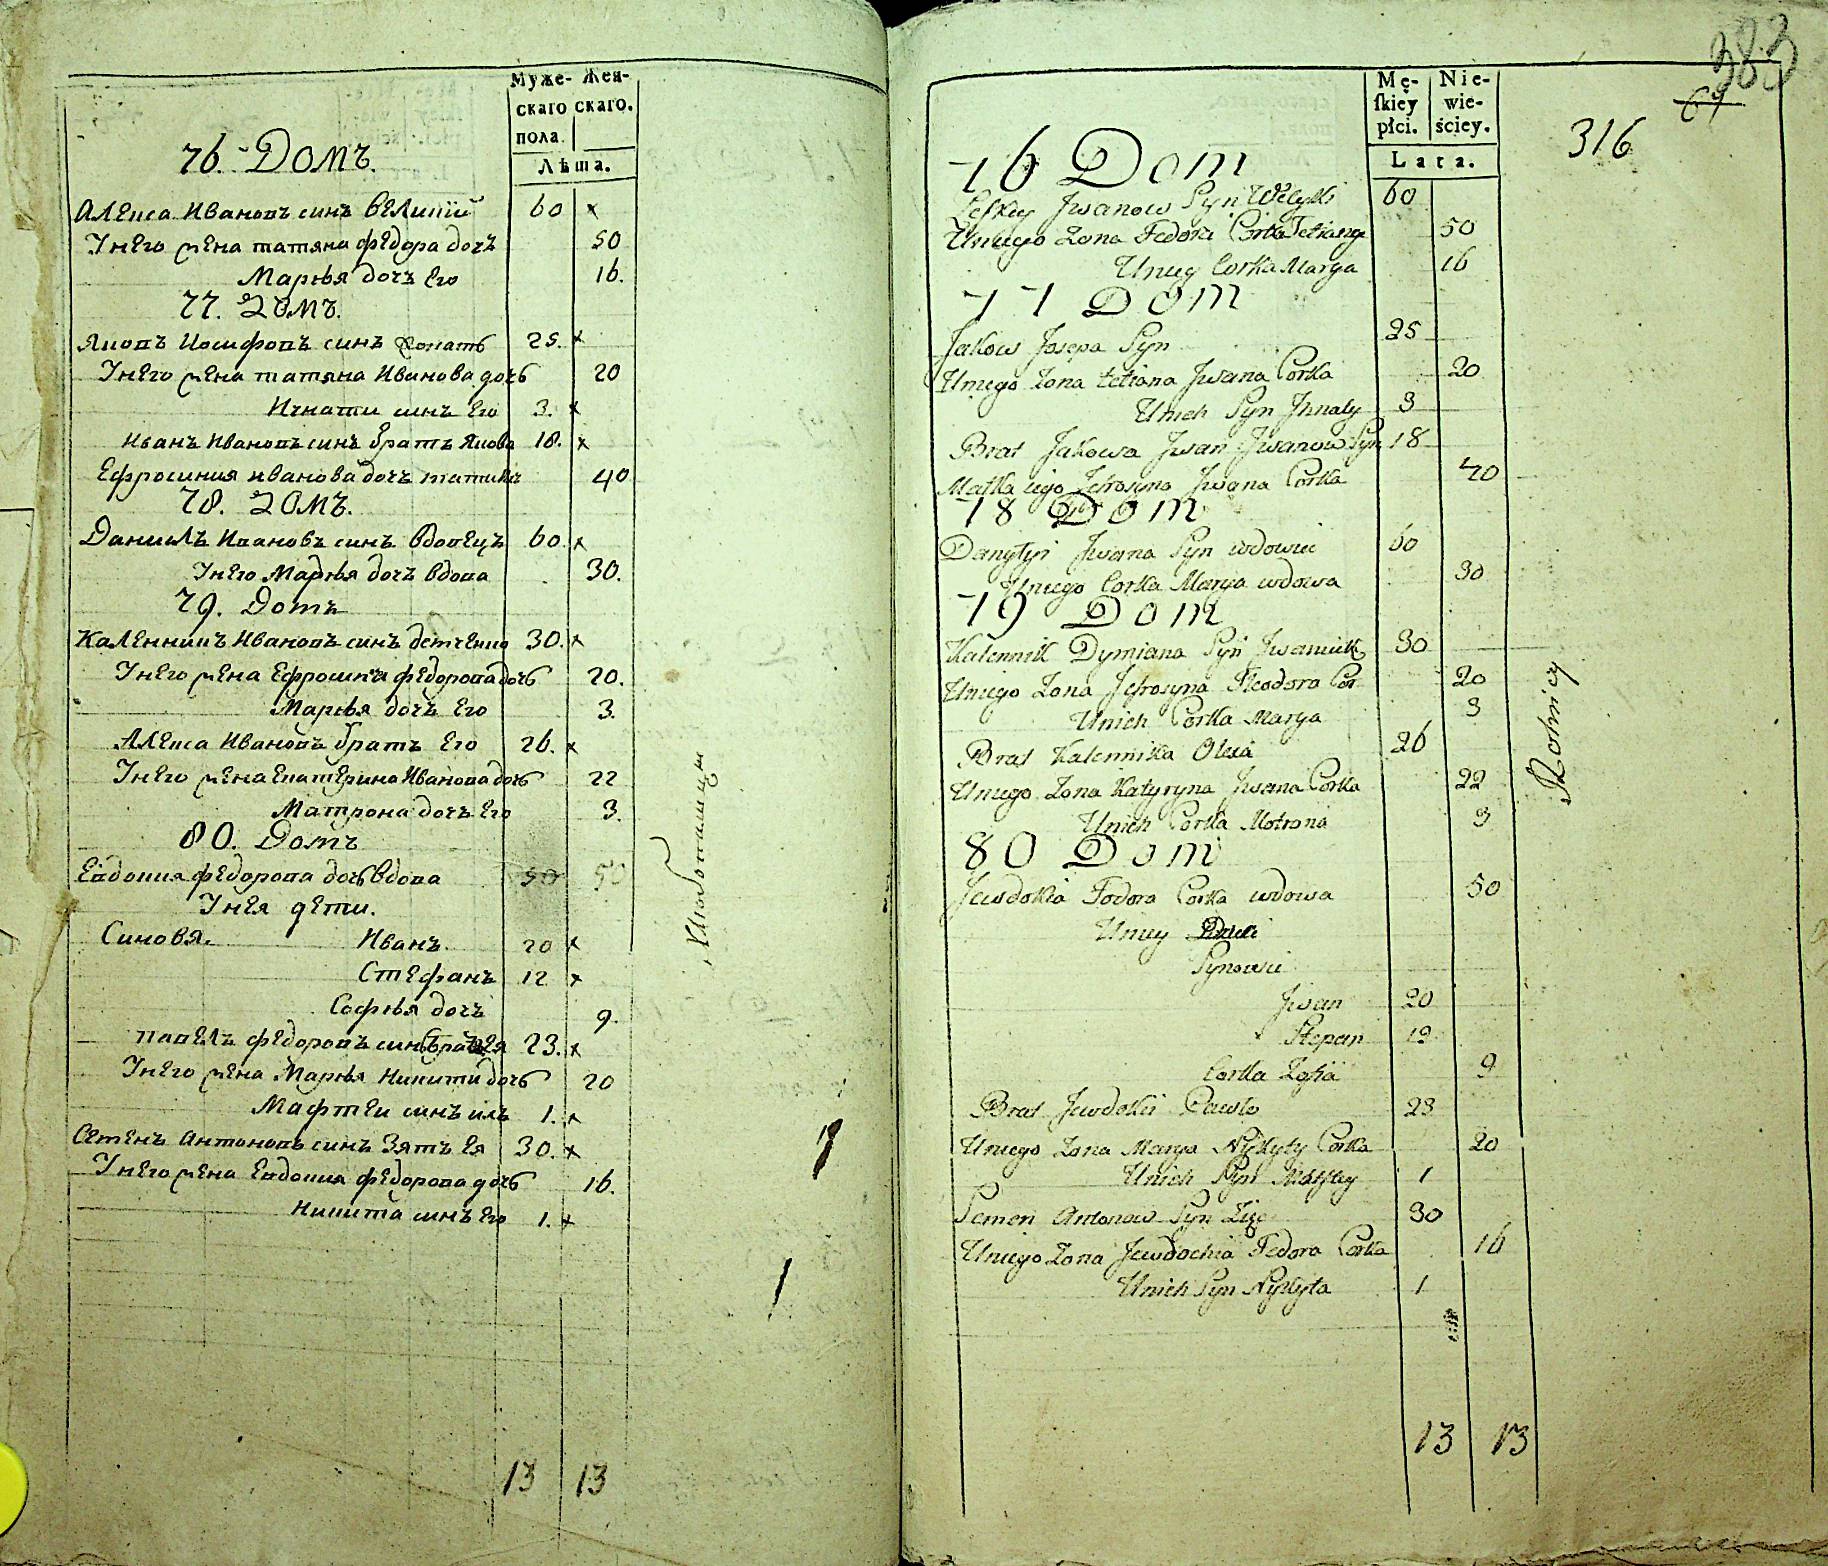 Муже- Жен-
скаго скаго.
пола.
Лѣта.
76. Домъ.
Алекса Ивановъ синъ великий 60 x
Унего жена татяна федора дочъ 50
Марья дочъ Его 16.
77. Домъ.
Яковъ Иосифовъ синъ 25. x
Унего жена татяна Иванова дочъ 20
Игнати синъ Его 3. x
Иванъ Ивановъ синъ братъ Якова 18. x
Ефросиния иванова дочъ 40
78. Домъ.
Даниилъ Ивановъ синъ вдовецъ 60. x
Унего Марья дочъ вдова 30.
79. Домъ
Каленникъ Ивановъ синъ 30. x
Унего жена Ефросиния федорова дочъ 20.
Марья дочъ Его 3.
Алекса Ивановъ братъ Его 26. x
Унего жена Екатерина Иванова дочъ 22
Матрона дочъ Его 3.
80. Домъ
Евдокия федорова дочъ вдова 50 50
Унея дети.
Синовя. Иванъ. 20 x
Стефанъ 12 x
Софья дочъ 9.
павелъ федоровъ синъ братъ Ея 23. x
Унего жена Марья Никити дочъ 20
Мафтеи синъ ихъ 1. x
Семенъ антоновъ синъ Зять Ея 30. x
Унего жена Евдокия федорова дочъ 16.
Никита синъ Его 1. x
13 13
383
69
316
Mę- Nie-
skiey wie-
płci. ściey.
Lata.
76 Dom
Leskey Jwanow Syn Welyki 60
Uniego Zona Fedora Corka Tetiana 50
Unieg Corka Marya 16
77 Dom
Jakow Josepa Syn 25
Uniego Zona tetiana Jwana Corka 20
Unich Syn Jhnaty 3
Brat Jakowa Jwan Jwanow Syn 18
Matka iego Jefrosyna Jwana Corka 40
78 Dom
Danyłyi Jwana Syn wdowiec 60
Uniego Corka Marya wdowa 30
79 Dom
Kalennik Dymiana Syn 30
Uniego Zona Jefrosyna Fteodora Cor 20
Unich Corka Marya 3
Brat Kalennika Olexa 26
Uniego Zona Katyryna Jwana Corka 22
Unich Corka Motrona 3
80 Dom
Jewdokia Fodora Corka wdowa 50
Uniey
Synowie
Jwan 20
Stepan 12
Corka Zofia 9
Brat Jewdokii Pawło 23
Uniego Zona Marya Nykyty Corka 20
Unich Syn Maftey 1
Semen Antonow Syn Zięc 30
Uniego Zona Jewdochia Fedora Corka 16
Unich Syn Nykyta 1
Rolnicy
13 13